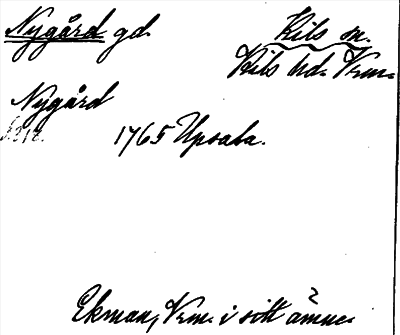 Nygård gd. Kils sn.
Kils hd. Vrm.
Nygård
1765 Upsala.
Ekman, Vrm. i sitt ämne.